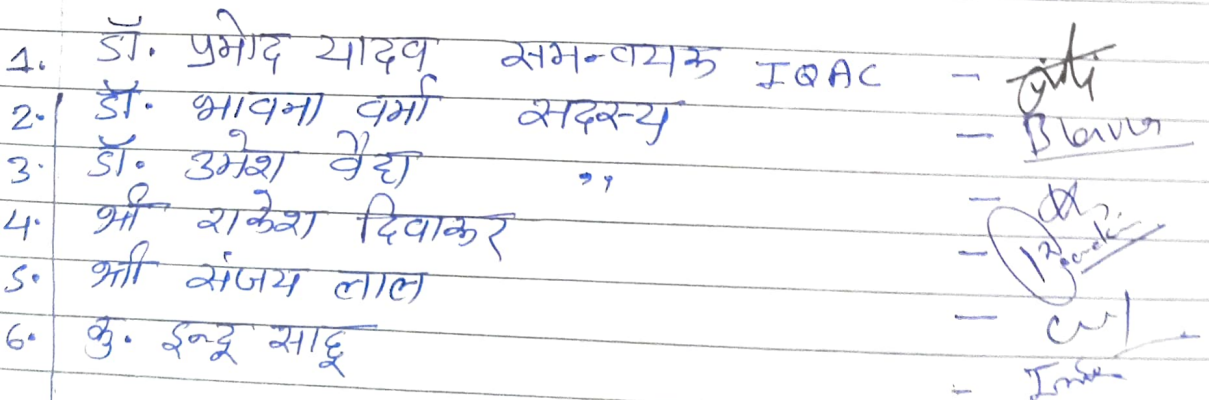 1. डॉ. प्रमोद यादव समन्वयक IQAC -
2. डॉ. भावना वर्मा सदस्य - Bhavna
3. डॉ. उमेश वैद्य ,, -
4. श्री राकेश दिवाकर -
5. श्री संजय लाल -
6. कु. इन्दू साहू -